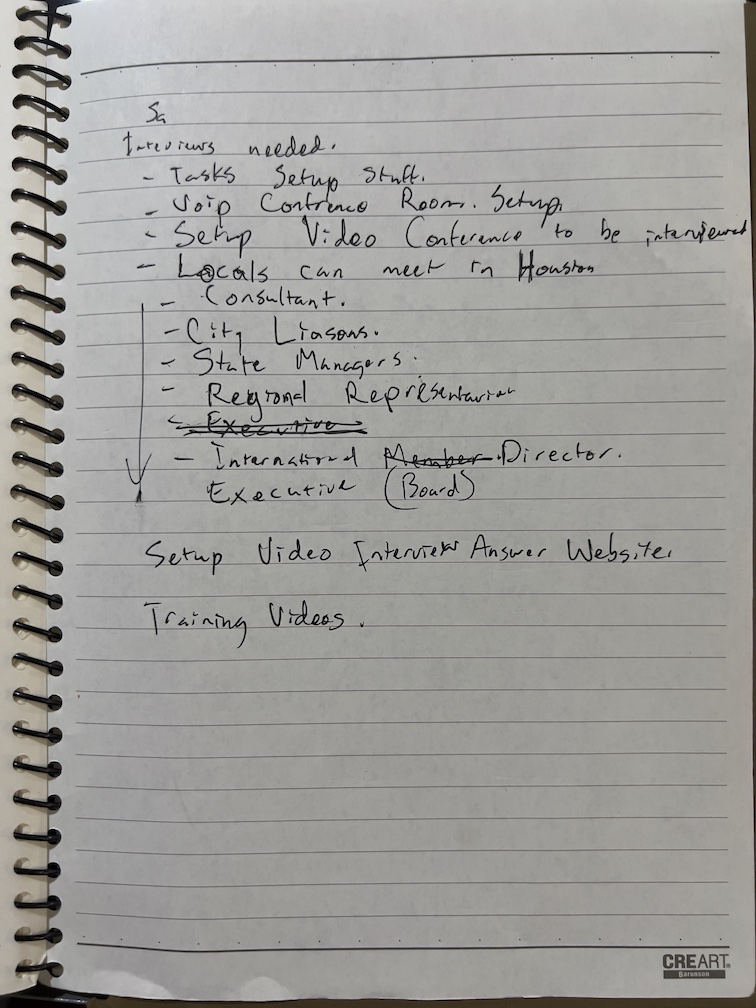 Sa
Interviews needed.
- Tasks Setup Stuff.
- Voip Confrence Room. Setup.
- Setup Video Conference to be interviewed
- Locals can meet in Houston
- Consultant.
- City Liasons.
- State Managers.
- Regional Representative
- Executive
- International Member Director.
Executive (Board)
Setup Video Interview Answer Website.
Training Videos.
CREART
Barunson